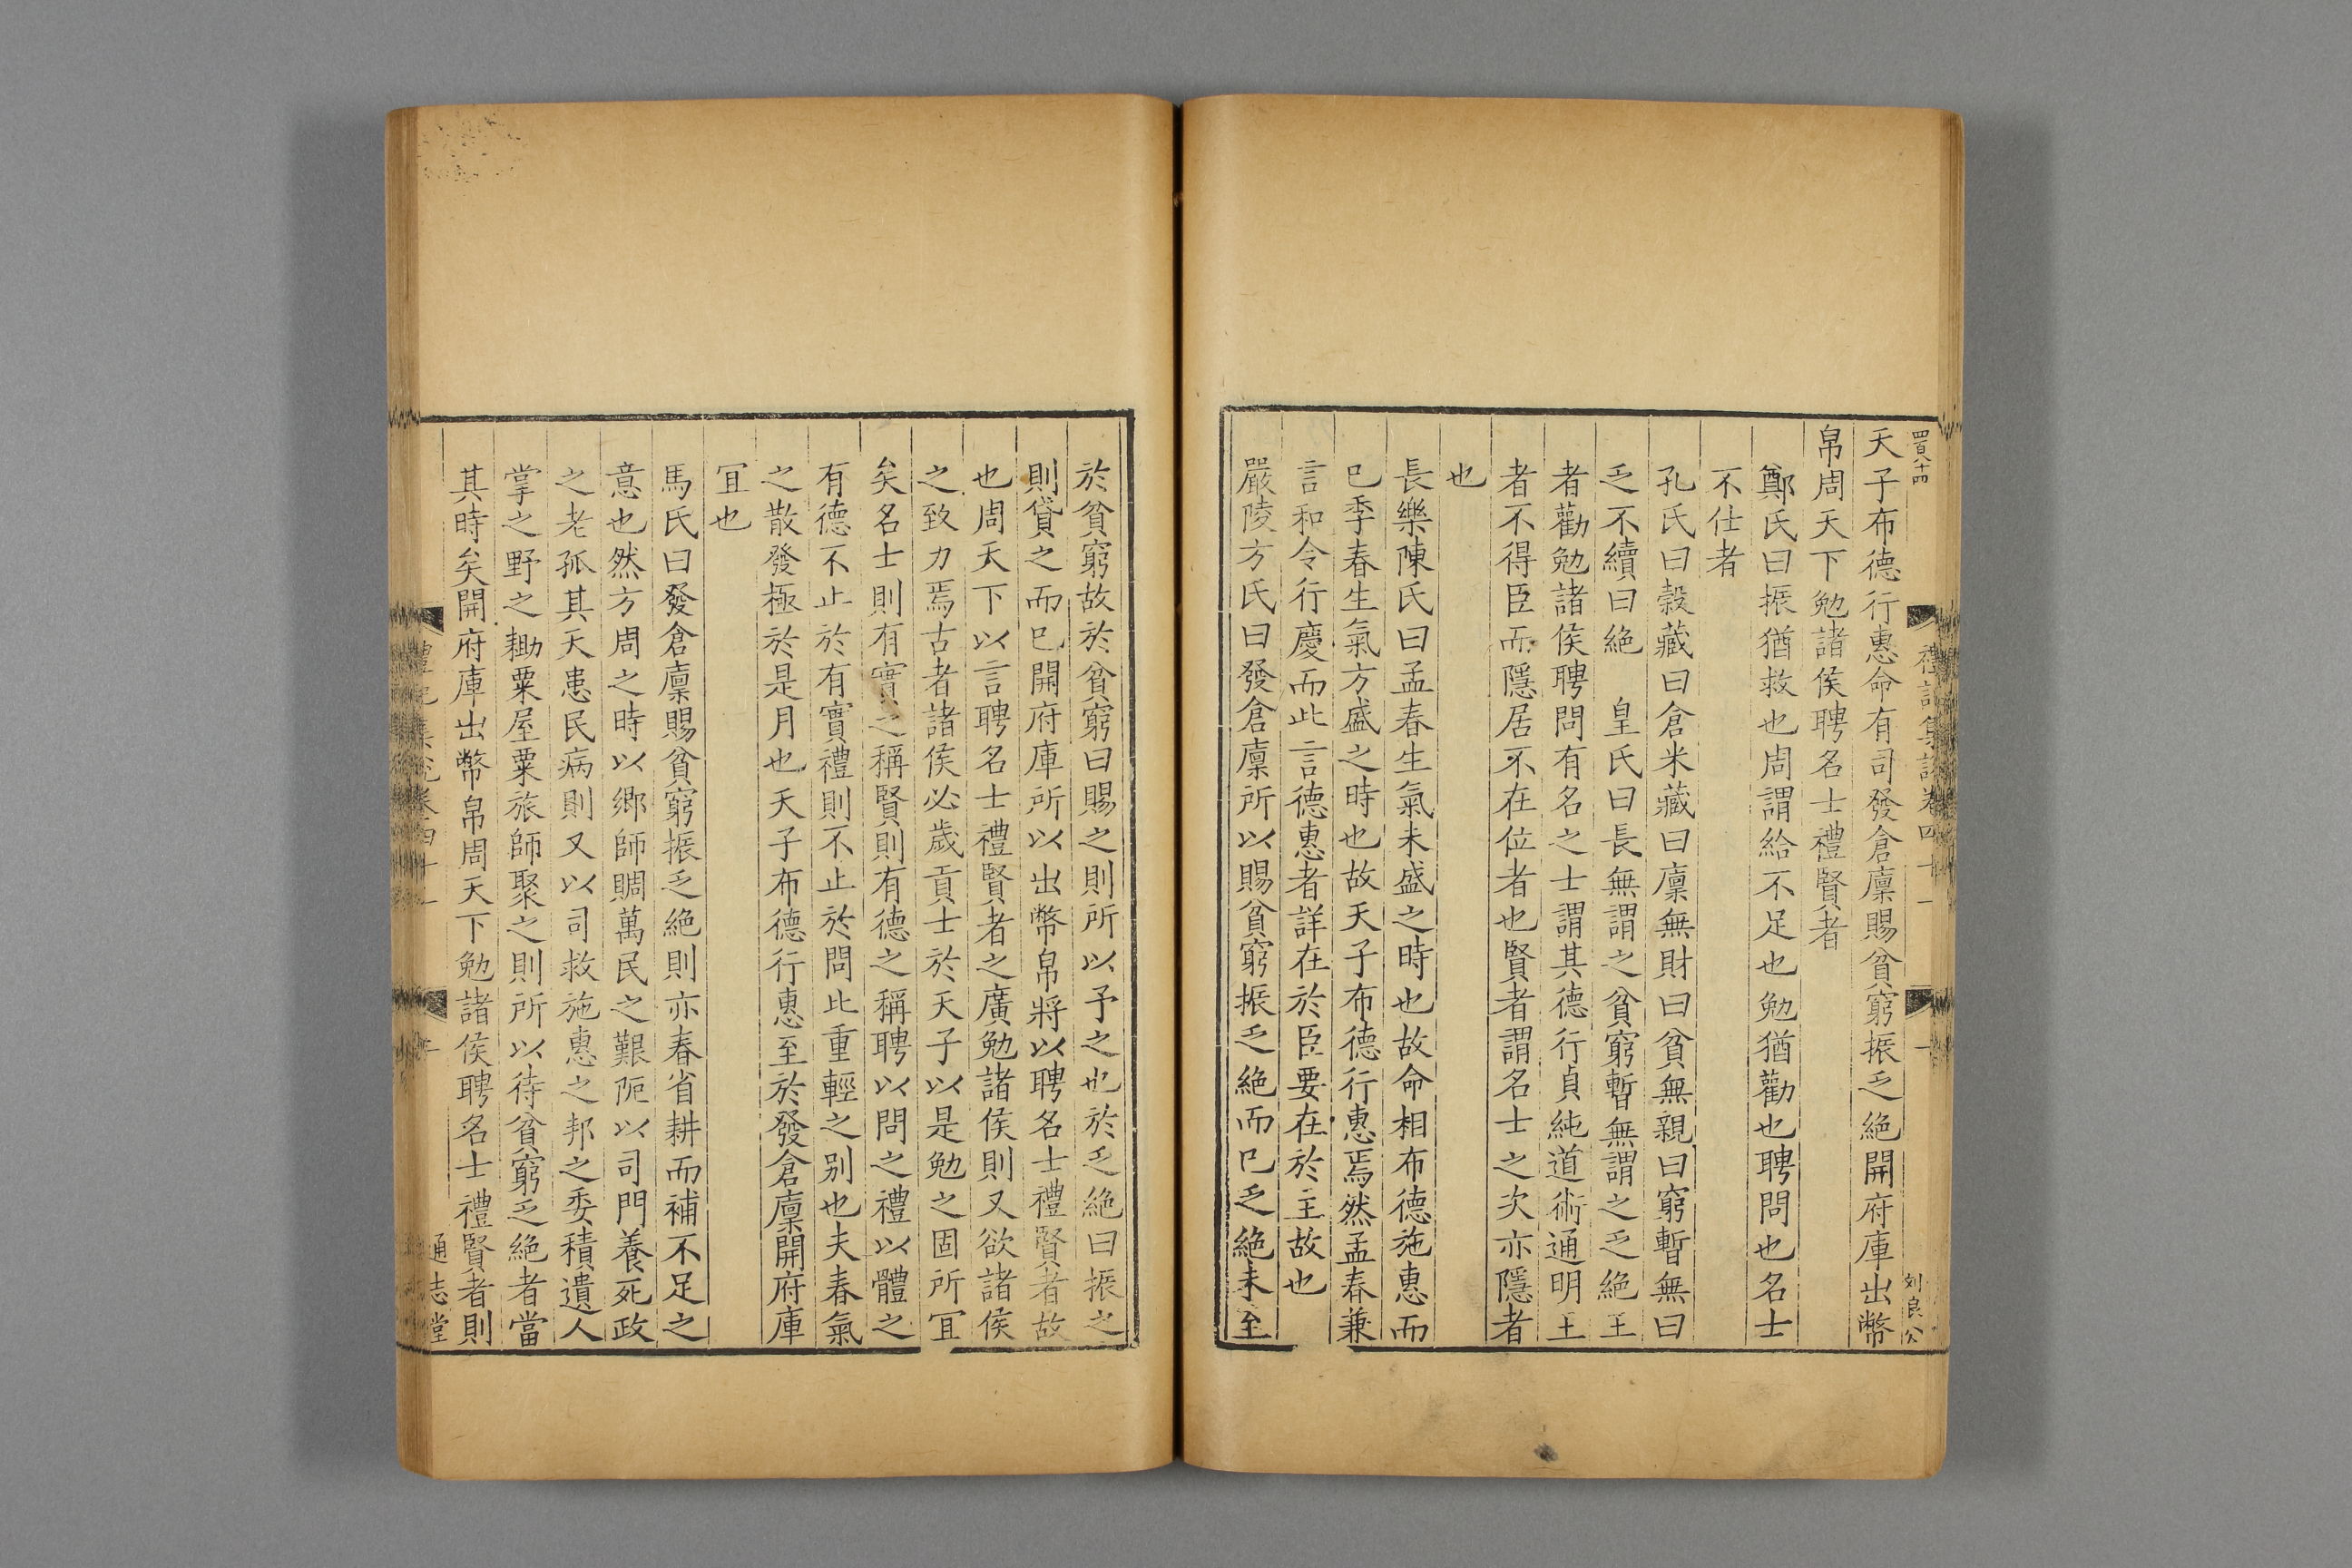 四百八十四
禮記集說卷四十一
一
刘良公
天子布德行惠命有司發倉廩賜貧窮振乏絕開府庫出幣
帛周天下勉諸侯聘名士禮賢者
鄭氏曰振猶救也周謂給不足也勉猶勸也聘問也名士
不仕者
孔氏曰穀藏曰倉米藏曰廩無財曰貧無親曰窮暫無曰
乏不續曰絕　皇氏曰長無謂之貧窮暫無謂之乏絕王
者勸勉諸侯聘問有名之士謂其德行貞純道術通明王
者不得臣而隱居不在位者也賢者謂名士之次亦隱者
也
長樂陳氏曰孟春生氣未盛之時也故命相布德施惠而
已季春生氣方盛之時也故天子布德行惠焉然孟春兼
言和令行慶而此言德惠者詳在於臣要在於主故也
嚴陵方氏曰發倉廩所以賜貧窮振乏絕而已乏絕未至
於貧窮故於貧窮曰賜之則所以予之也於乏絕曰振之
則貸之而已開府庫所以出幣帛將以聘名士禮賢者故
也周天下以言聘名士禮賢者之廣勉諸侯則又欲諸侯
之致力焉古者諸侯必歲貢士於天子以是勉之固所宜
矣名士則有實之稱賢則有德之稱聘以問之禮以體之
有德不止於有實禮則不止於問此重輕之别也夫春氣
之散發極於是月也天子布德行惠至於發倉廩開府庫
宜也
馬氏曰發倉廩賜貧窮振乏絕則亦春省耕而補不足之
意也然方周之時以鄉師賙萬民之艱阨以司門養死政
之老孤其天患民病則又以司救施惠之邦之委積遺人
掌之野之耡粟屋粟旅師聚之則所以待貧窮乏絕者當
其時矣開府庫出幣帛周天下勉諸侯聘名士禮賢者則
禮記集說卷四十一
通志堂